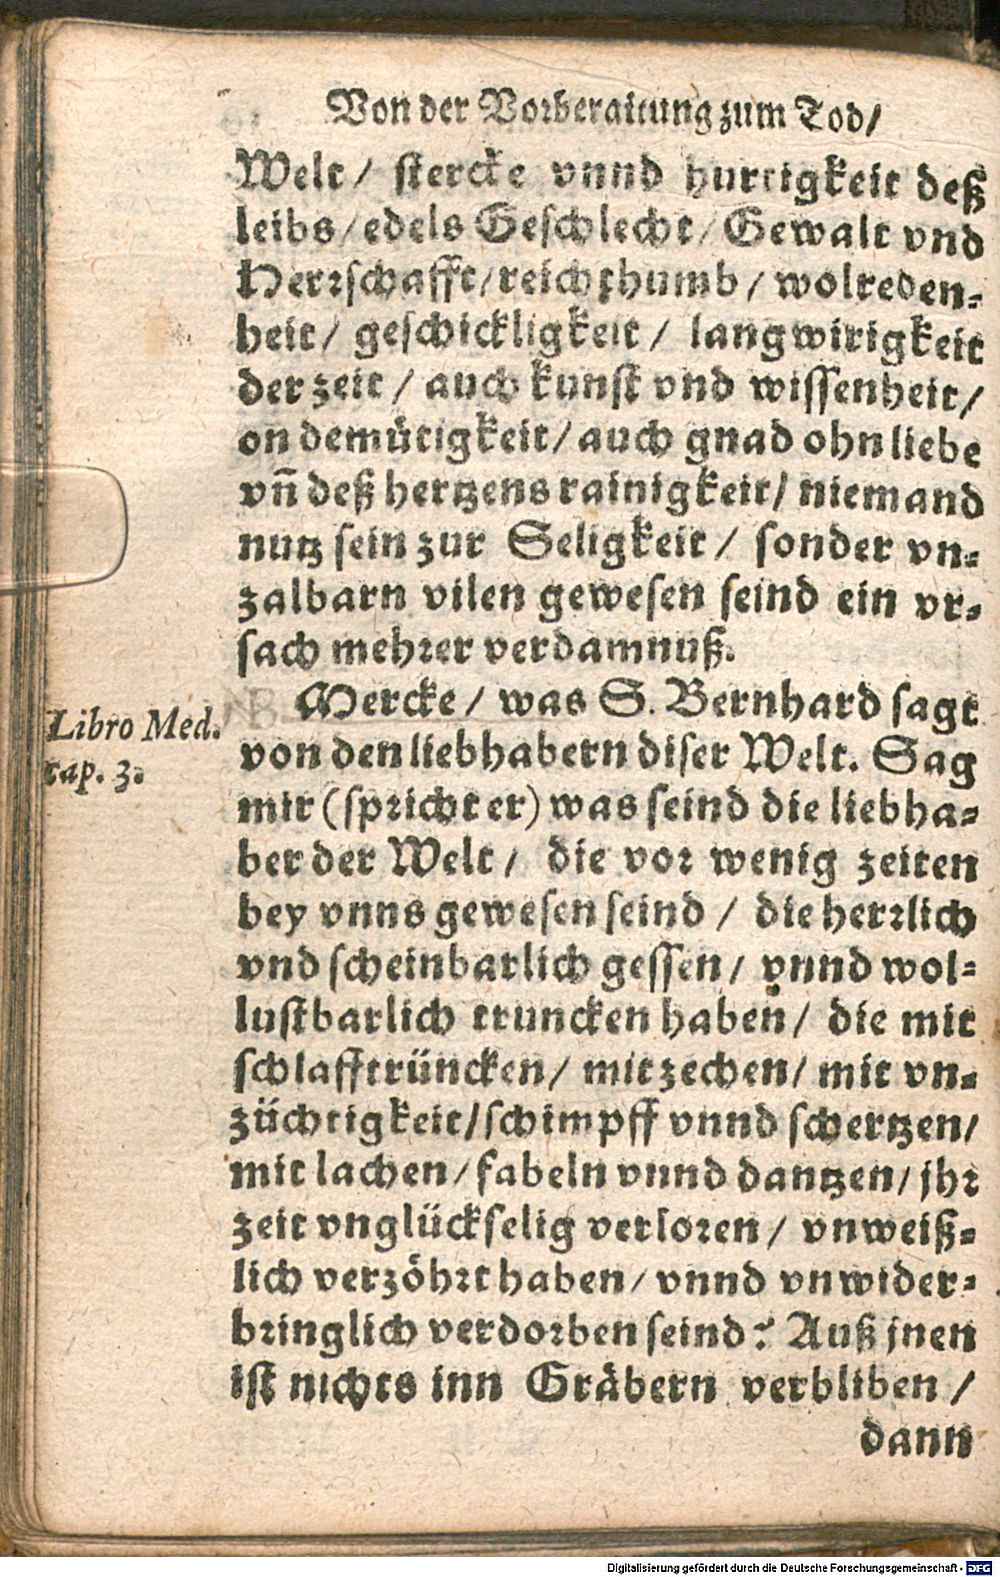 Von der Vorberaitung zum Tod/
Welt/ stercke vnnd hurtigkeit deß
leibs/ edels Geschlecht/ Gewalt vnd
Herrschafft/ reichthumb/ wolreden-
heit/ geschickligkeit/ langwirigkeit
der zeit/ auch kunst vnd wissenheit/
on demütigkeit/ auch gnad ohn liebe
vn̄ deß hertzens rainigkeit/ niemand
nutz sein zur Seligkeit/ sonder vn-
zalbarn vilen gewesen seind ein vr-
sach mehrer verdamnuß.
NB
Mercke/ was S. Bernhard sagt
Libro Med.
cap. 3.
von den liebhabern diser Welt. Sag
mir (spricht er) was seind die liebha-
ber der Welt/ die vor wenig zeiten
bey vnns gewesen seind/ die herrlich
vnd scheinbarlich gessen/ vnnd wol-
lustbarlich truncken haben/ die mit
schlafftrüncken/ mit zechen/ mit vn-
züchtigkeit/ schimpff vnnd schertzen/
mit lachen/ fabeln vnnd dantzen/ jhr
zeit vnglückselig verloren/ vnweiß-
lich verzöhrt haben/ vnnd vnwider-
bringlich verdorben seind? Auß jnen
ist nichts inn Gräbern verbliben/
dann
Digitalisierung gefördert durch die Deutsche Forschungsgemeinschaft - DFG